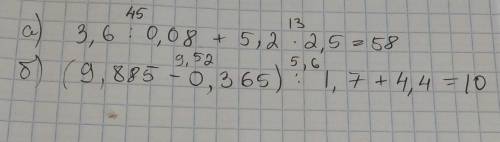 45 13
а) 3,6 : 0,08 + 5,2 · 2,5 = 58
9,52 5,6
б) (9,885 - 0,365) : 1,7 + 4,4 = 10